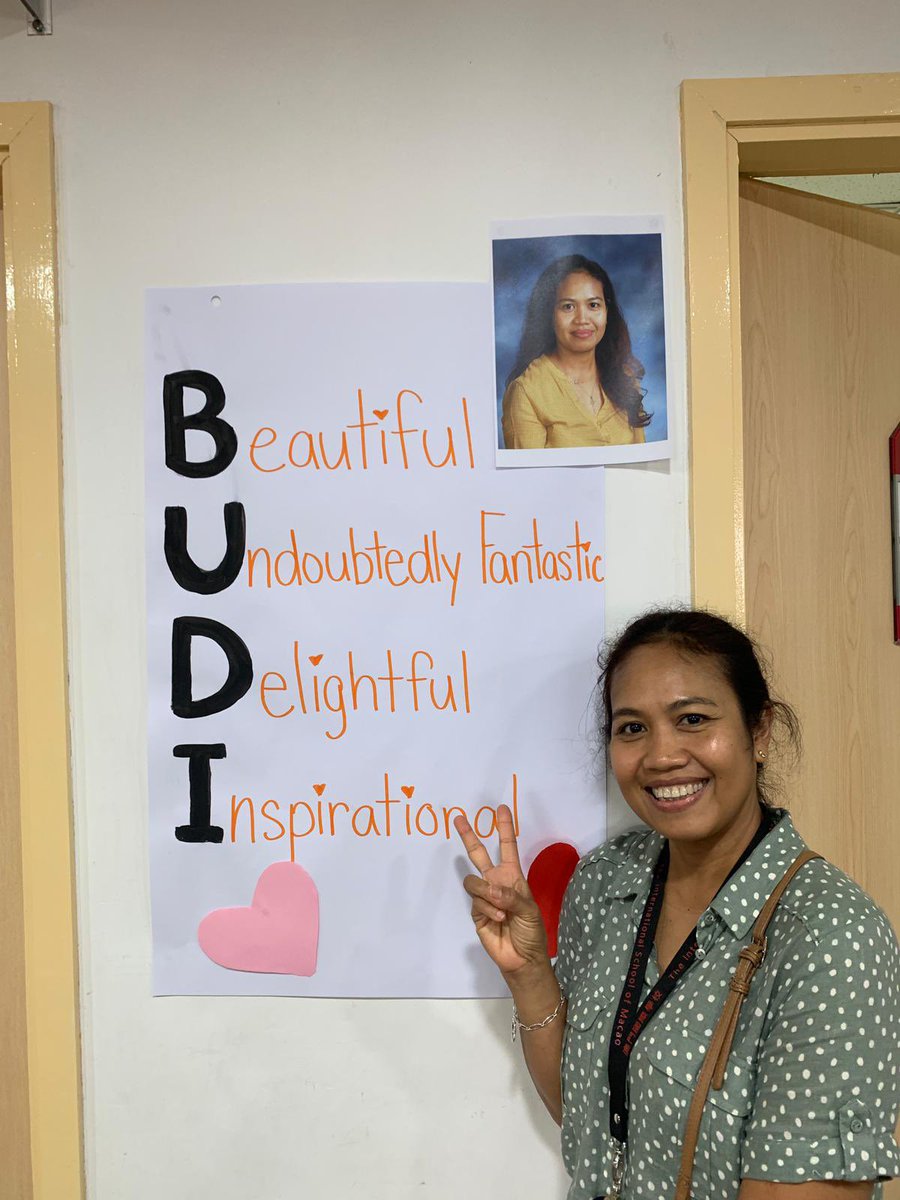 Beautiful
Undoubtedly Fantastic
Delightful
Inspirational
The International School of Macao
澳門國際學校